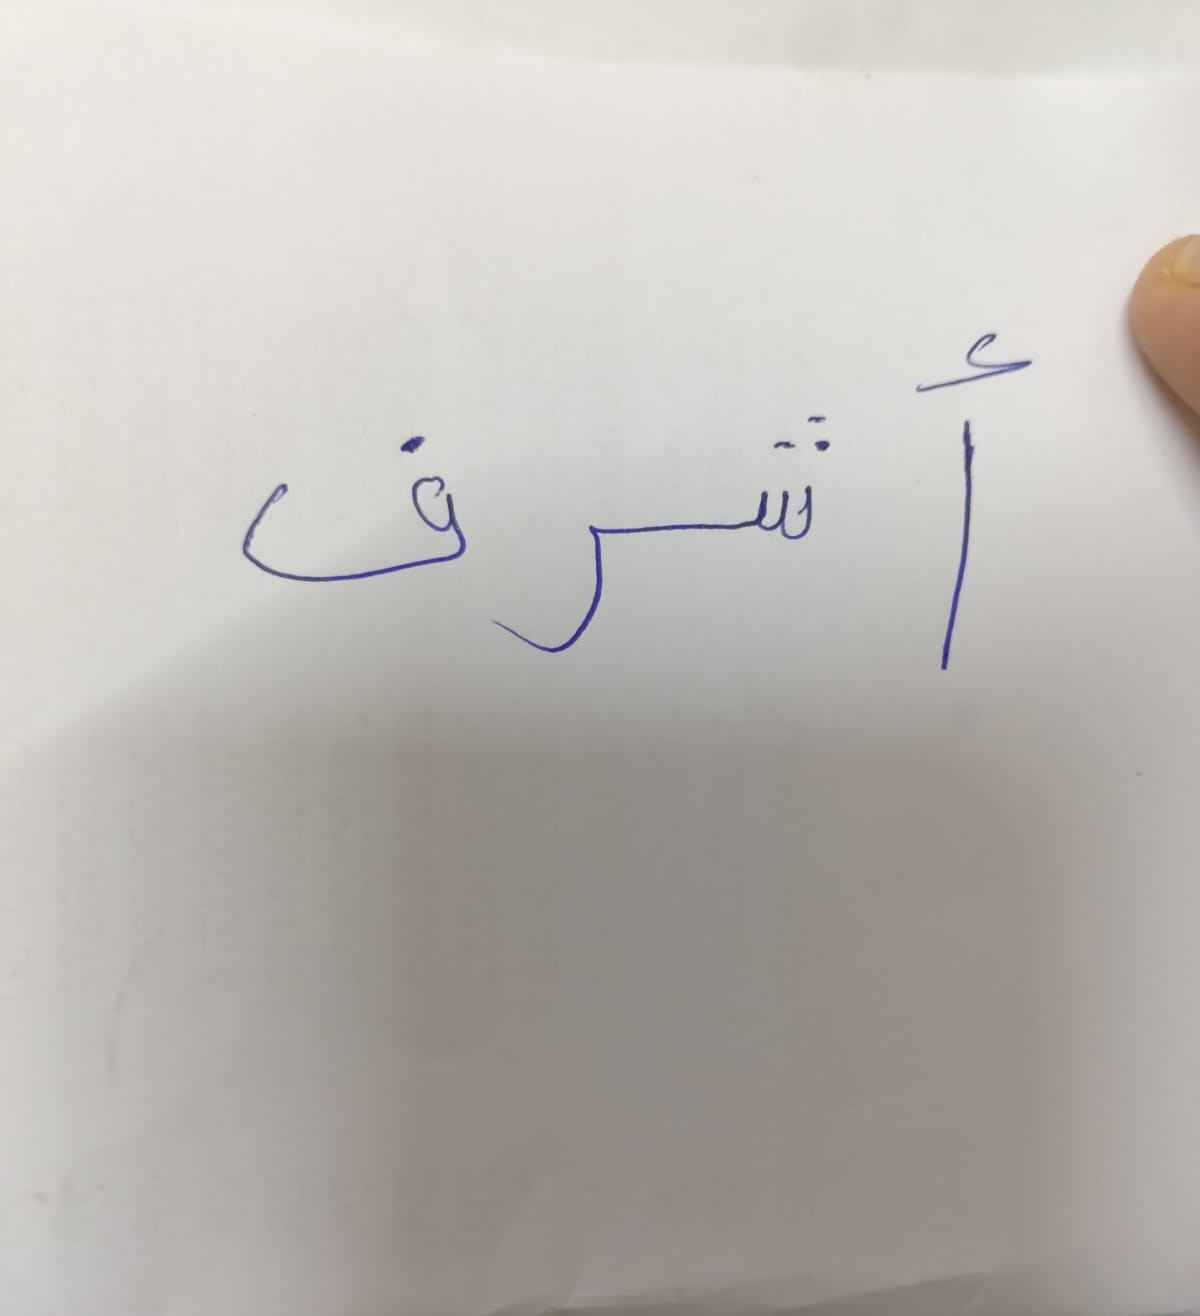 أشرف